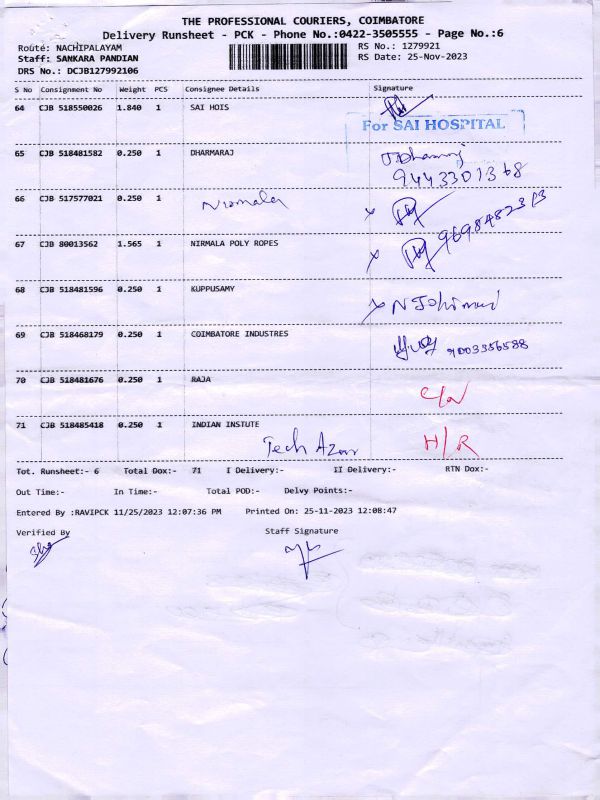 THE PROFESSIONAL COURIERS, COIMBATORE
Delivery Runsheet - PCK - Phone No.:0422-3505555 - Page No.:6
Route: NACHIPALAYAM RS No.: 1279921
Staff: SANKARA PANDIAN RS Date: 25-Nov-2023
DRS No.: DCJB127992106
S No Consignment No Weight PCS Consignee Details Signature
64 CJB 518550026 1.840 1 SAI HOIS
For SAI HOSPITAL
65 CJB 518481582 0.250 1 DHARMARAJ
9443301368
66 CJB 517577021 0.250 1 Nirmala
67 CJB 80013562 1.565 1 NIRMALA POLY ROPES
68 CJB 518481596 0.250 1 KUPPUSAMY
69 CJB 518468179 0.250 1 COIMBATORE INDUSTRES
9003356588
70 CJB 518481676 0.250 1 RAJA
71 CJB 518485418 0.250 1 INDIAN INSTUTE H/R
Tech
Tot. Runsheet:- 6 Total Dox:- 71 I Delivery:- II Delivery:- RTN Dox:-
Out Time:- In Time:- Total POD:- Delvy Points:-
Entered By :RAVIPCK 11/25/2023 12:07:36 PM Printed On: 25-11-2023 12:08:47
Verified By Staff Signature